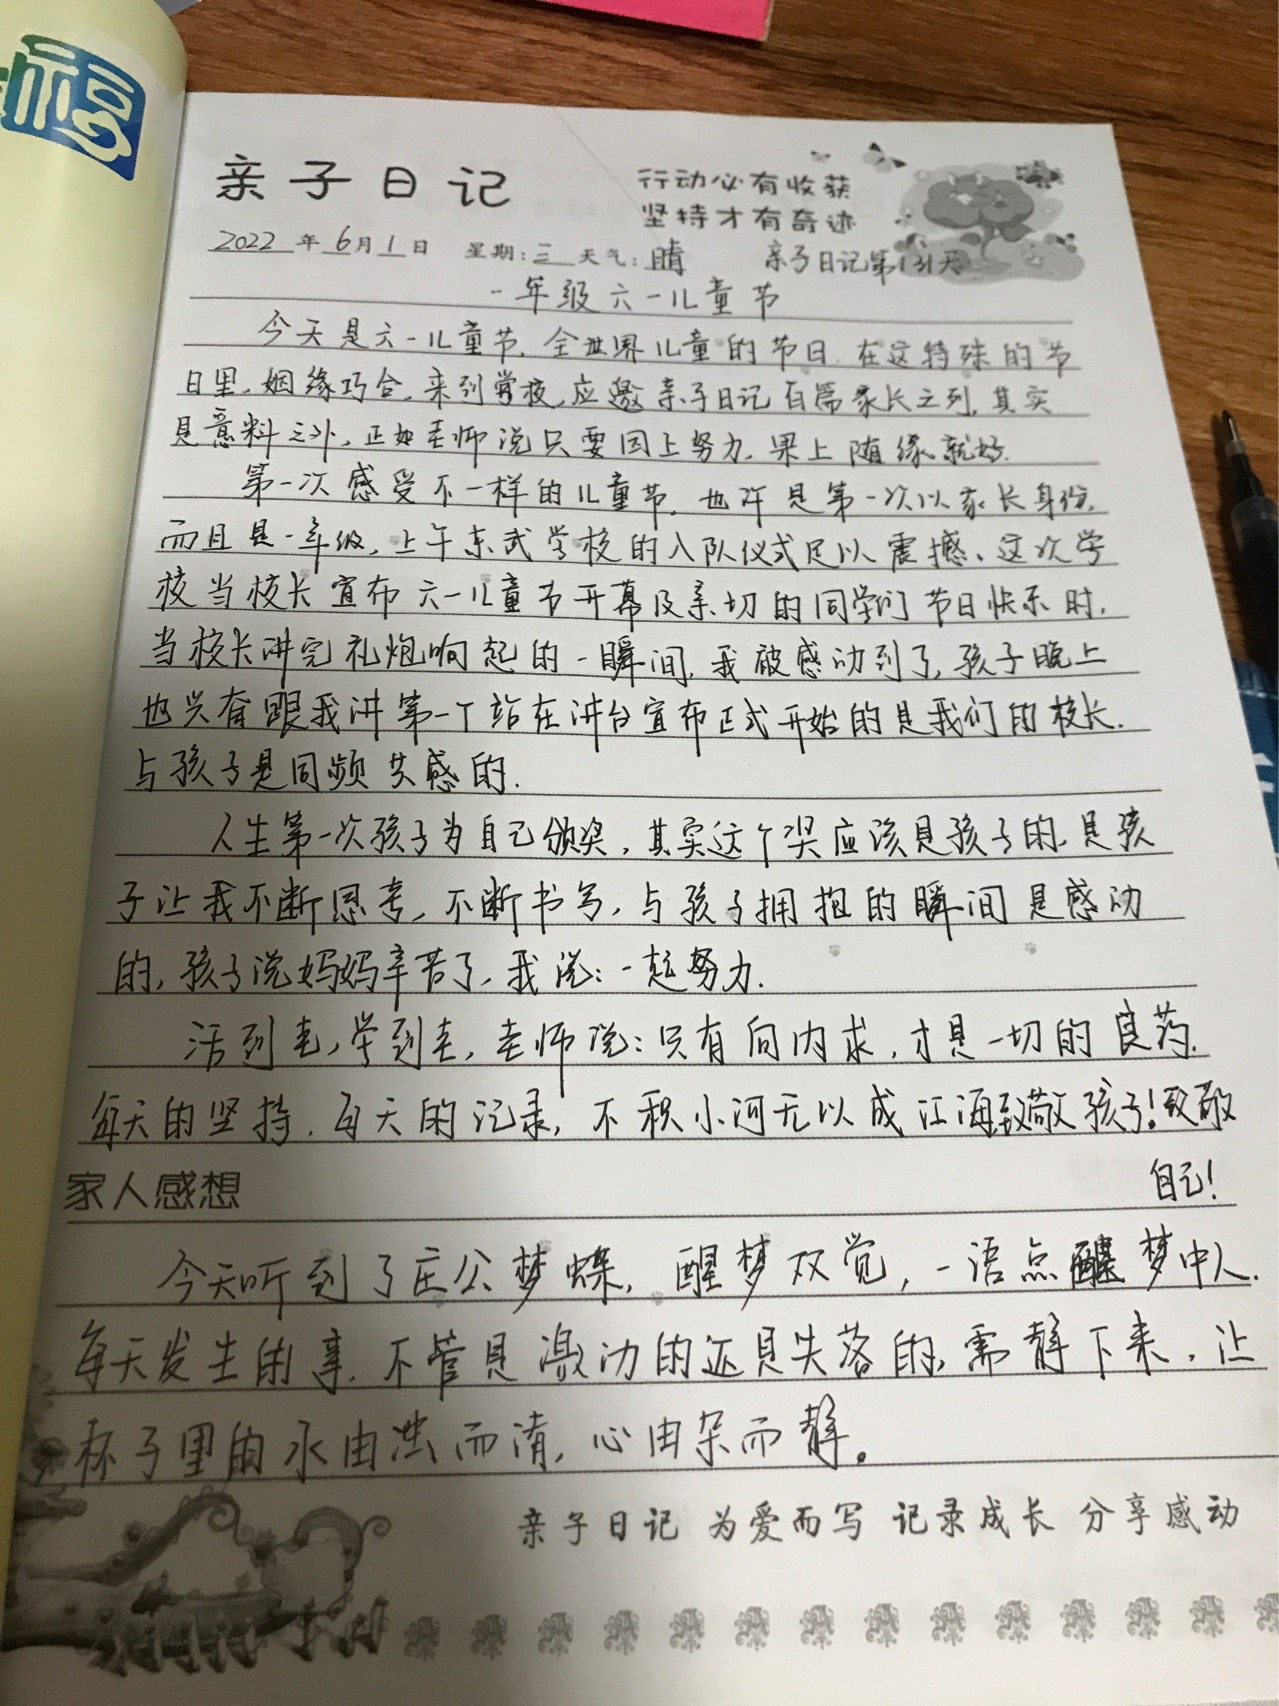 福
亲子日记
行动必有收获
坚持才有奇迹
2022年6月1日 星期:三 天气:晴 亲子日记第131天
一年级六一儿童节
今天是六一儿童节,全世界儿童的节日.在这特殊的节
日里,姻缘巧合,来到学校,应邀亲子日记百篇家长之列,其实
是意料之外,正如老师说只要因上努力,果上随缘就好.
第一次感受不一样的儿童节,也许是第一次以家长身份,
而且是一年级,上午东武学校的入队仪式足以震撼、这次学
校当校长宣布六一儿童节开幕及亲切的同学们节日快乐时,
当校长讲完礼炮响起的一瞬间,我被感动到了,孩子晚上
也兴奋跟我讲第一个站在讲台宣布正式开始的是我们的校长.
与孩子是同频共感的.
人生第一次孩子为自己颁奖,其实这个奖应该是孩子的,是孩
子让我不断思考,不断书写,与孩子拥抱的瞬间是感动
的,孩子说妈妈辛苦了,我说:一起努力.
活到老,学到老,老师说:只有向内求,才是一切的良药.
每天的坚持,每天的记录,不积小河无以成江海致敬孩子!致敬
自己!
家人感想
今天听到了庄公梦蝶,醒梦双觉,一语点醒梦中人.
每天发生的事,不管是激动的还是失落的,需静下来,让
杯子里的水由浊而清,心由杂而静。
亲子日记 为爱而写 记录成长 分享感动